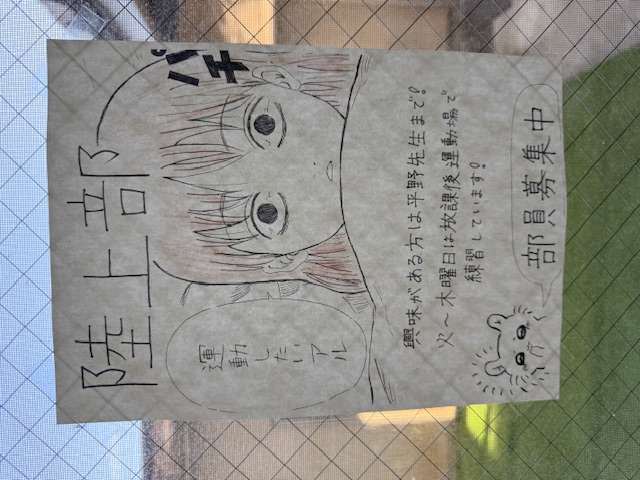 陸上部
パチ
運動
したい
アル
興味がある方は平野先生まで!
火〜木曜日は放課後運動場で
練習しています!
部員募集中